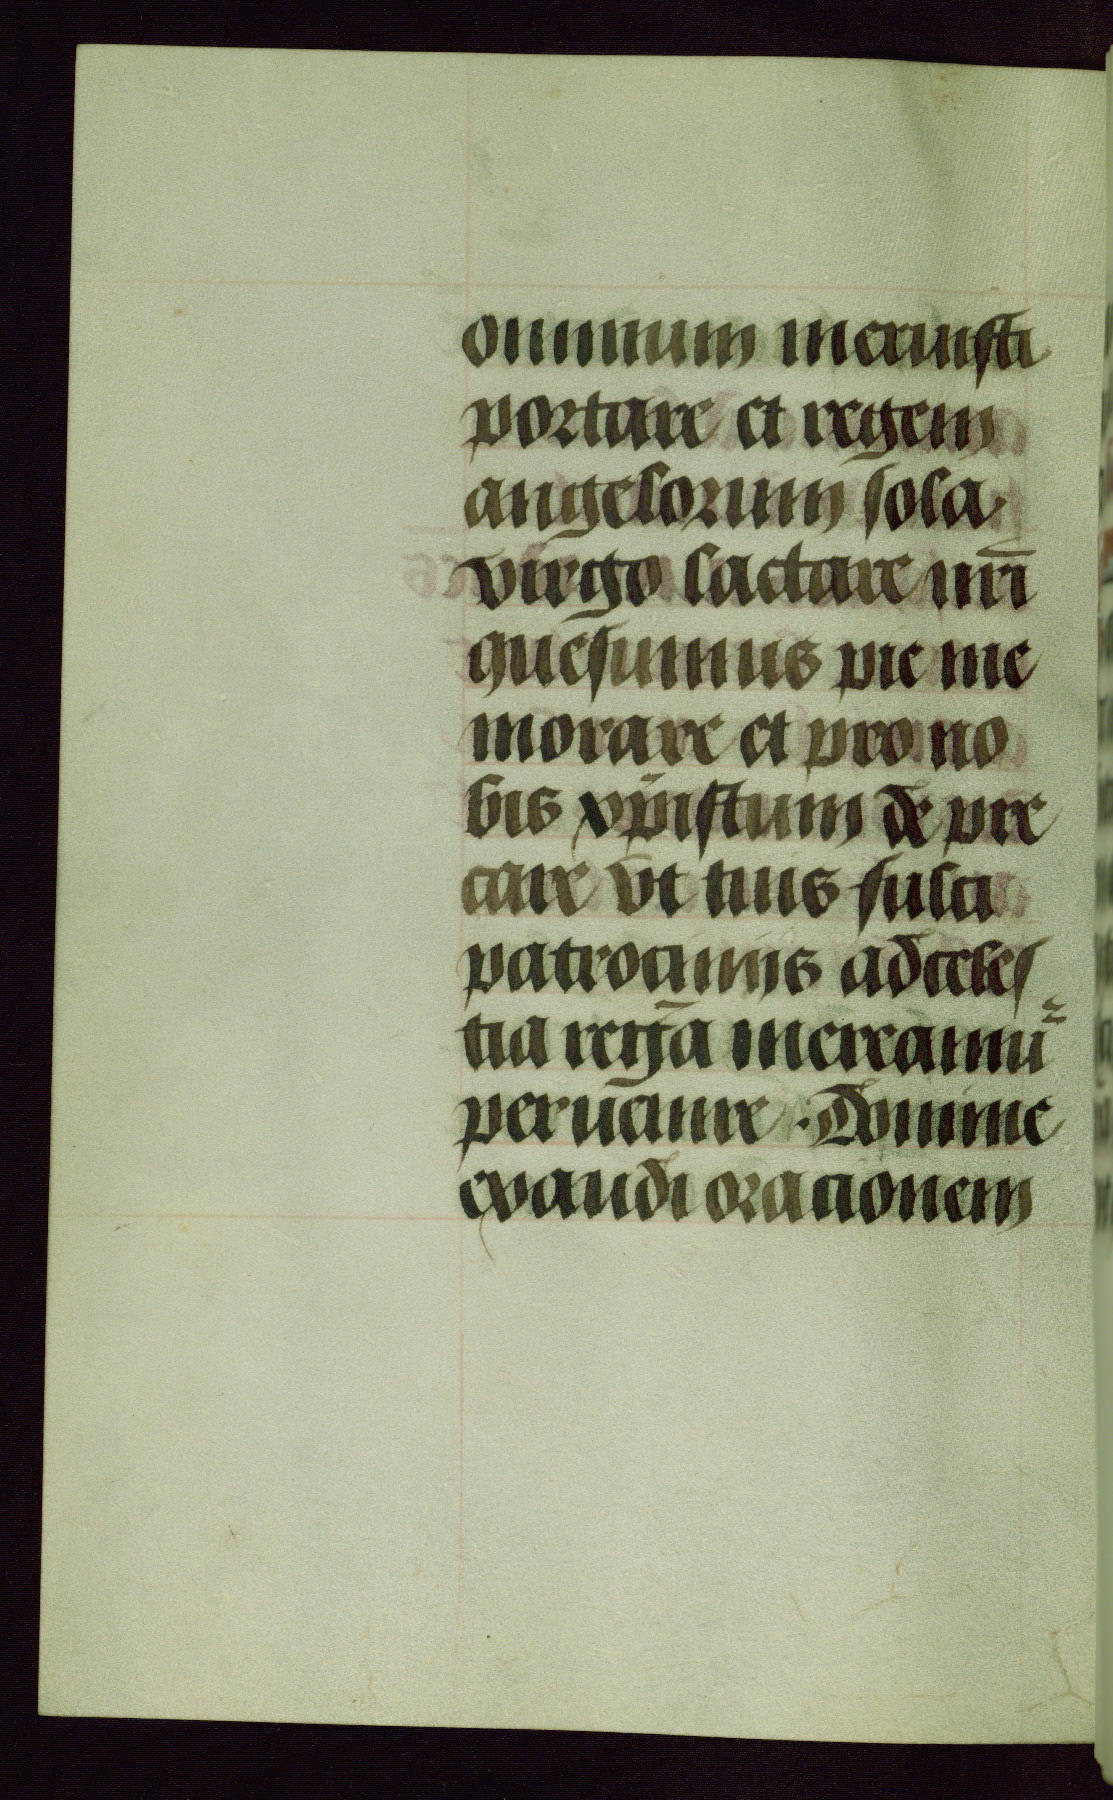 omnium meruisti
portare et regem
angelorum sola
virgo lactare nr̄i
quesumus pie me
morare et pro no
bis xp̄istum de pre
care vt tuis fulti
patrocinijs ad celes
tia regna mereamur
peruenire · Domine
exaudi oracionem